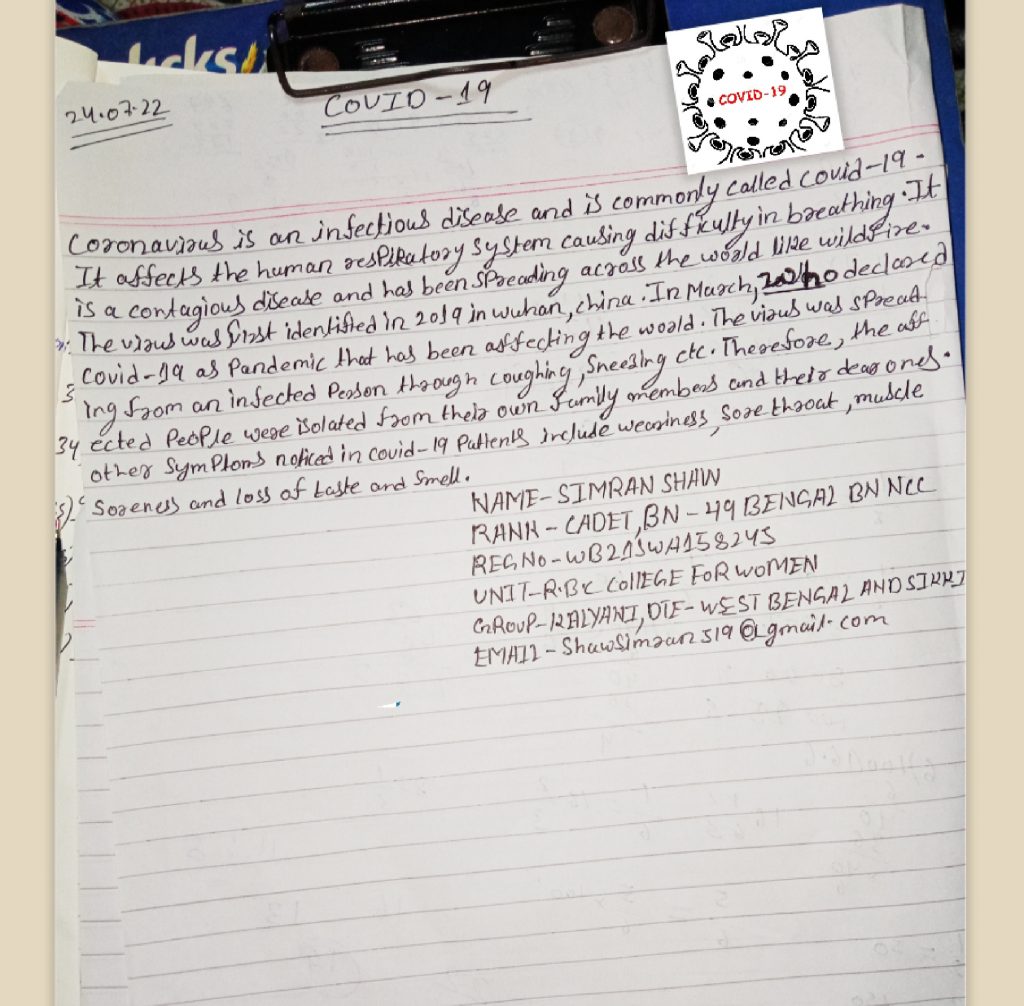 24.07.22
COVID-19
COVID-19
Coronavirus is an infectious disease and is commonly called covid-19.
It affects the human respiratory system causing difficulty in breathing. It
is a contagious disease and has been spreading across the world like wildfire.
The virus was first identified in 2019 in wuhan, china. In March, who declared
covid-19 as Pandemic that has been affecting the world. The virus was spread
ing from an infected Person through coughing, Sneezing etc. Therefore, the aff
ected People were isolated from their own family members and their dear ones.
other Symptoms noticed in covid-19 Patients include weariness, Sore throat, muscle
Soreness and loss of taste and Smell.
NAME- SIMRAN SHAW
RANK - CADET, BN - 49 BENGAL BN NCC
REGNo - WB21SWA158245
UNIT-R.B.C COllEGE FOR WOMEN
GROUP-KALYANI, DTE- WEST BENGAL AND SIKKI
EMAIL - Shawsimran519@gmail.com